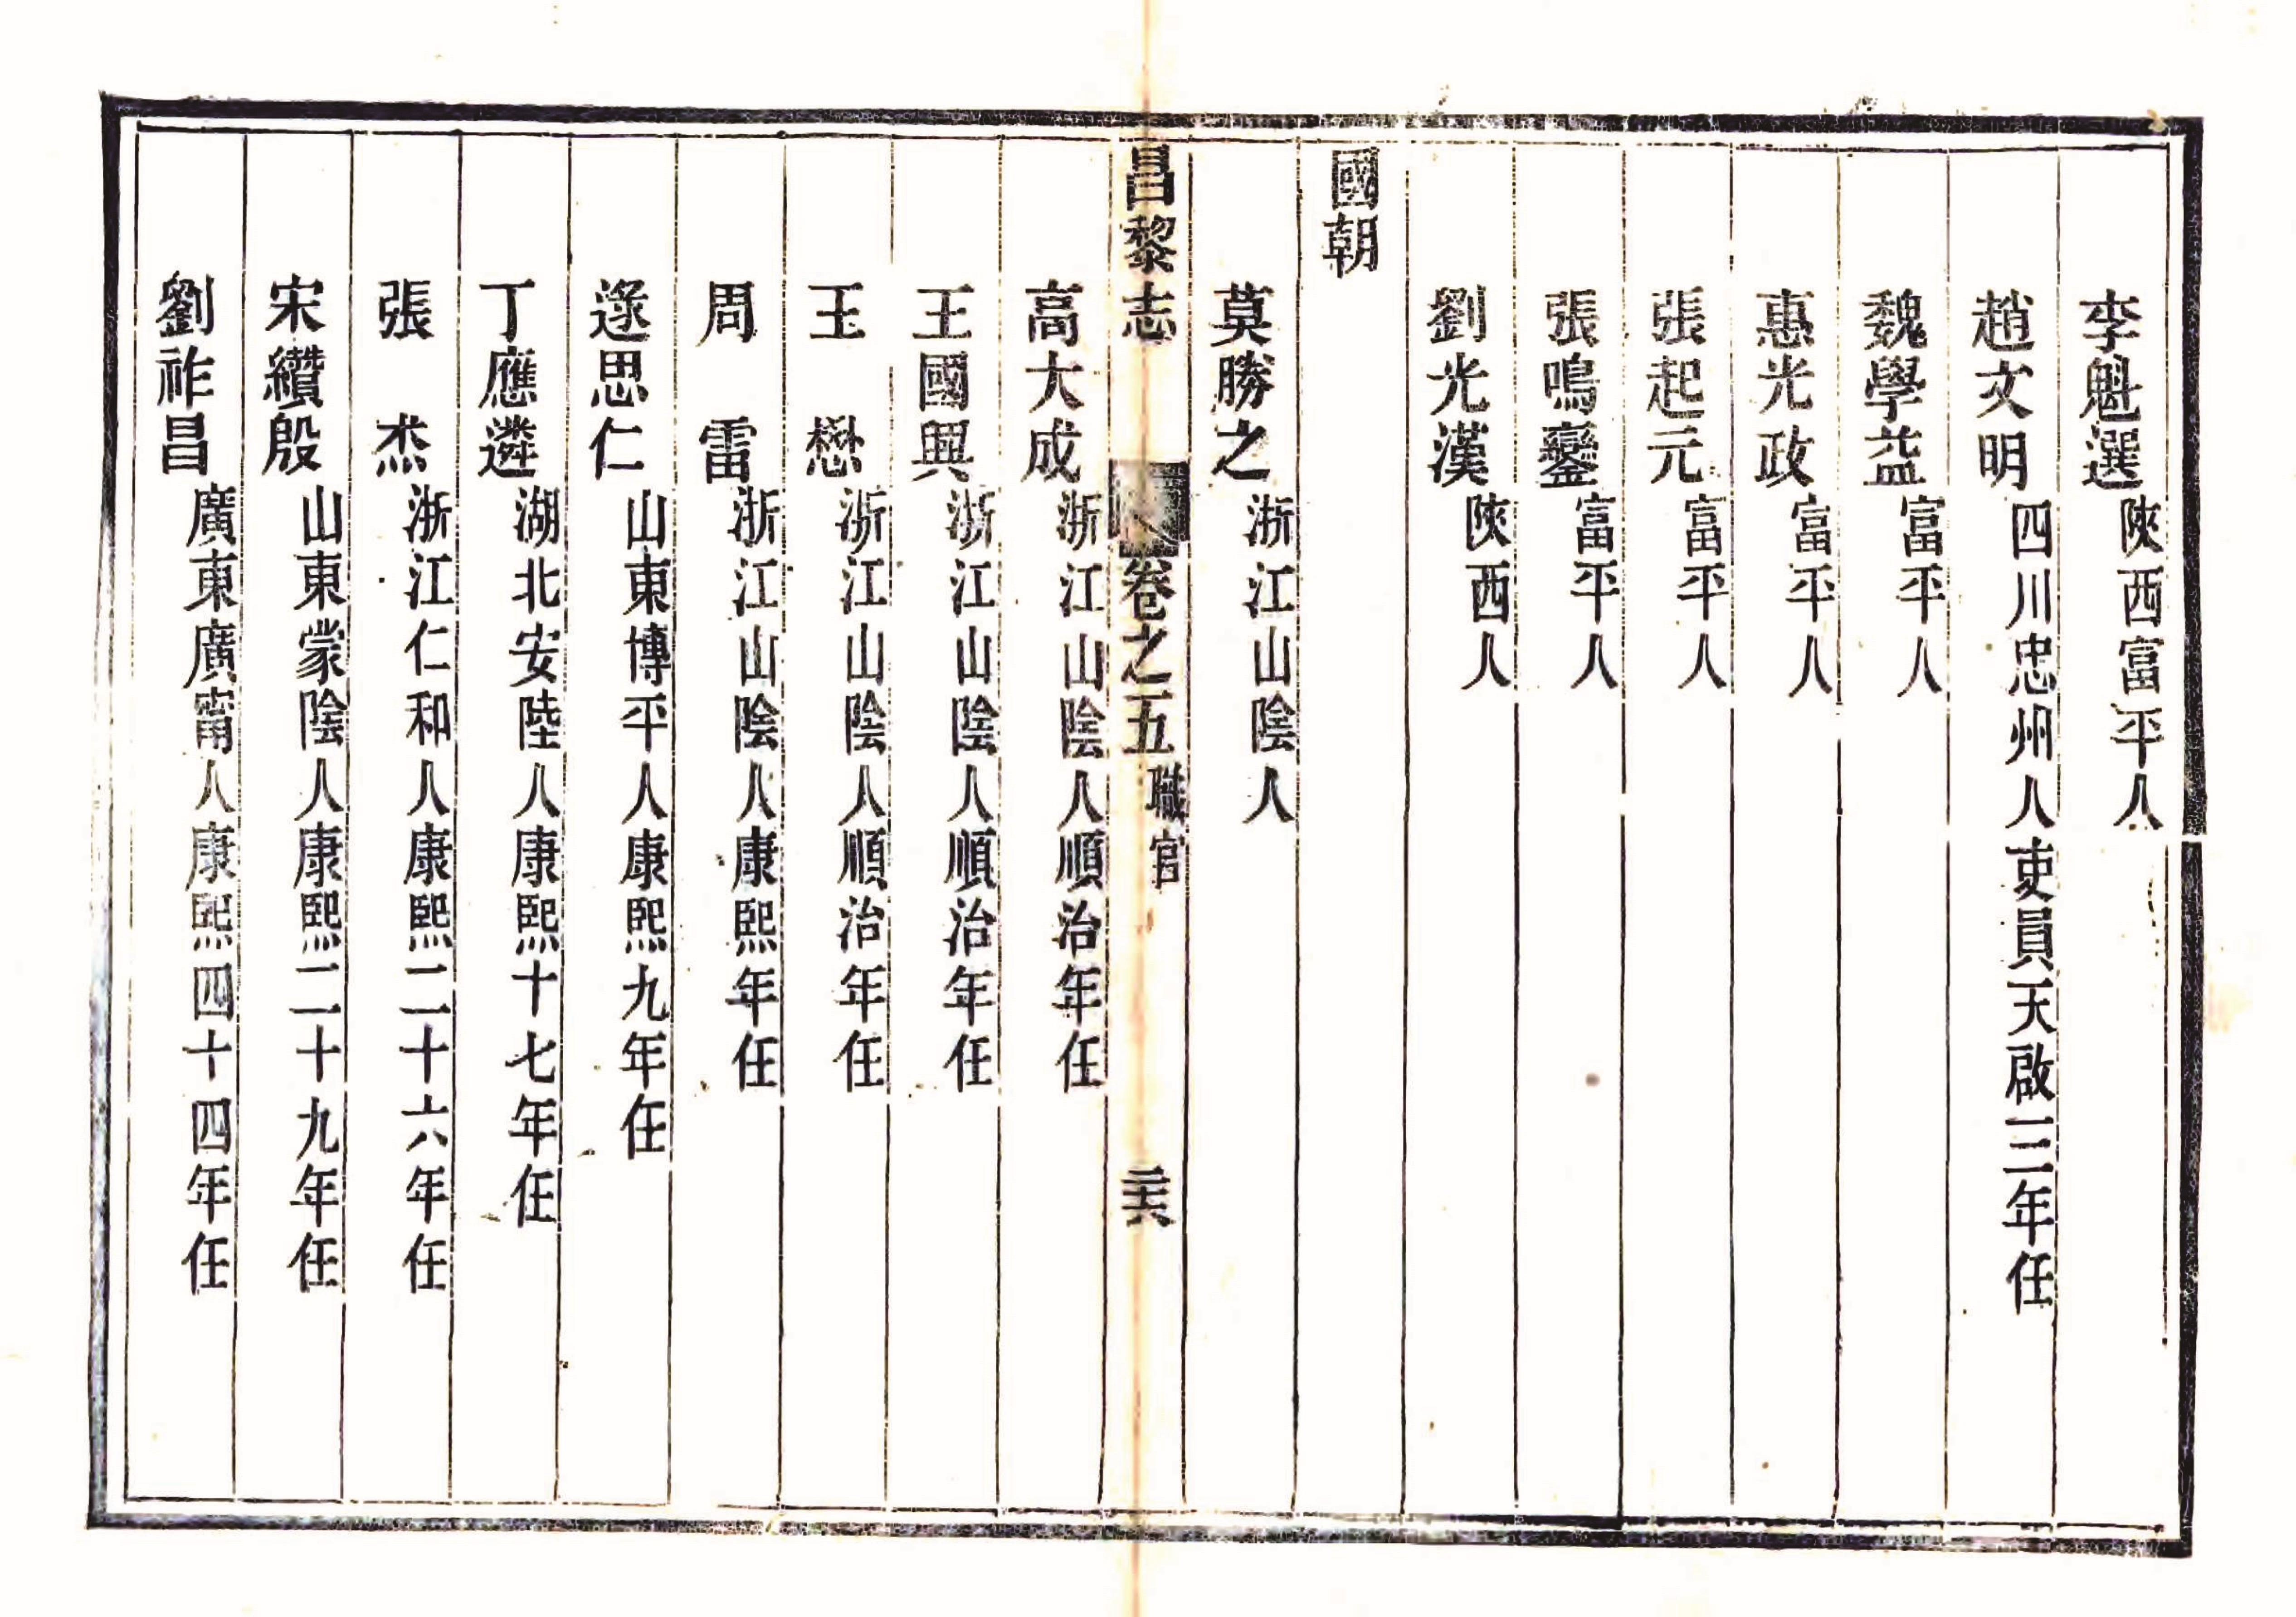 李魁選陝西富平人
趙文明四川忠州人吏員天啟三年任
魏學益富平人
惠光政富平人
張起元富平人
張鳴鑾富平人
劉光漢陝西人
國朝
莫勝之浙江山陰人
昌黎志 卷之五 職官 二十六
高大成浙江山陰人順治年任
王國興浙江山陰人順治年任
王 懋浙江山陰人順治年任
周 雷浙江山陰人康熙年任
逯思仁山東博平人康熙九年任
丁應遴湖北安陸人康熙十七年任
張 杰浙江仁和人康熙二十六年任
宋纘殷山東蒙陰人康熙二十九年任
劉祚昌廣東廣甯人康熙四十四年任